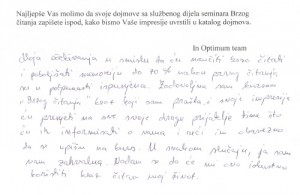 Najljepše Vas molimo da svoje dojmove sa službenog dijela seminara Brzog
čitanja zapišete ispod, kako bismo Vaše impresije uvrstili u katalog dojmova.
In Optimum team
Moja očekivanja u smislu da ću naučiti brzo čitati
i poboljšati memoriju do 10 % nakon prvog čitanja
su u potpunosti ispunjena. Zadovoljna sam kursom
o Brzom čitanju, koji sam prošla i svoje impresije
ću prenijeti na sve svoje drage prijatelje time što
ću ih informisati o svemu i reći im obavezno
da se upišu na kurs. U svakom slučaju, ja sam
vam zahvalna. Nadam se da će mi ovo iskustvo
koristiti kroz čitav moj život.